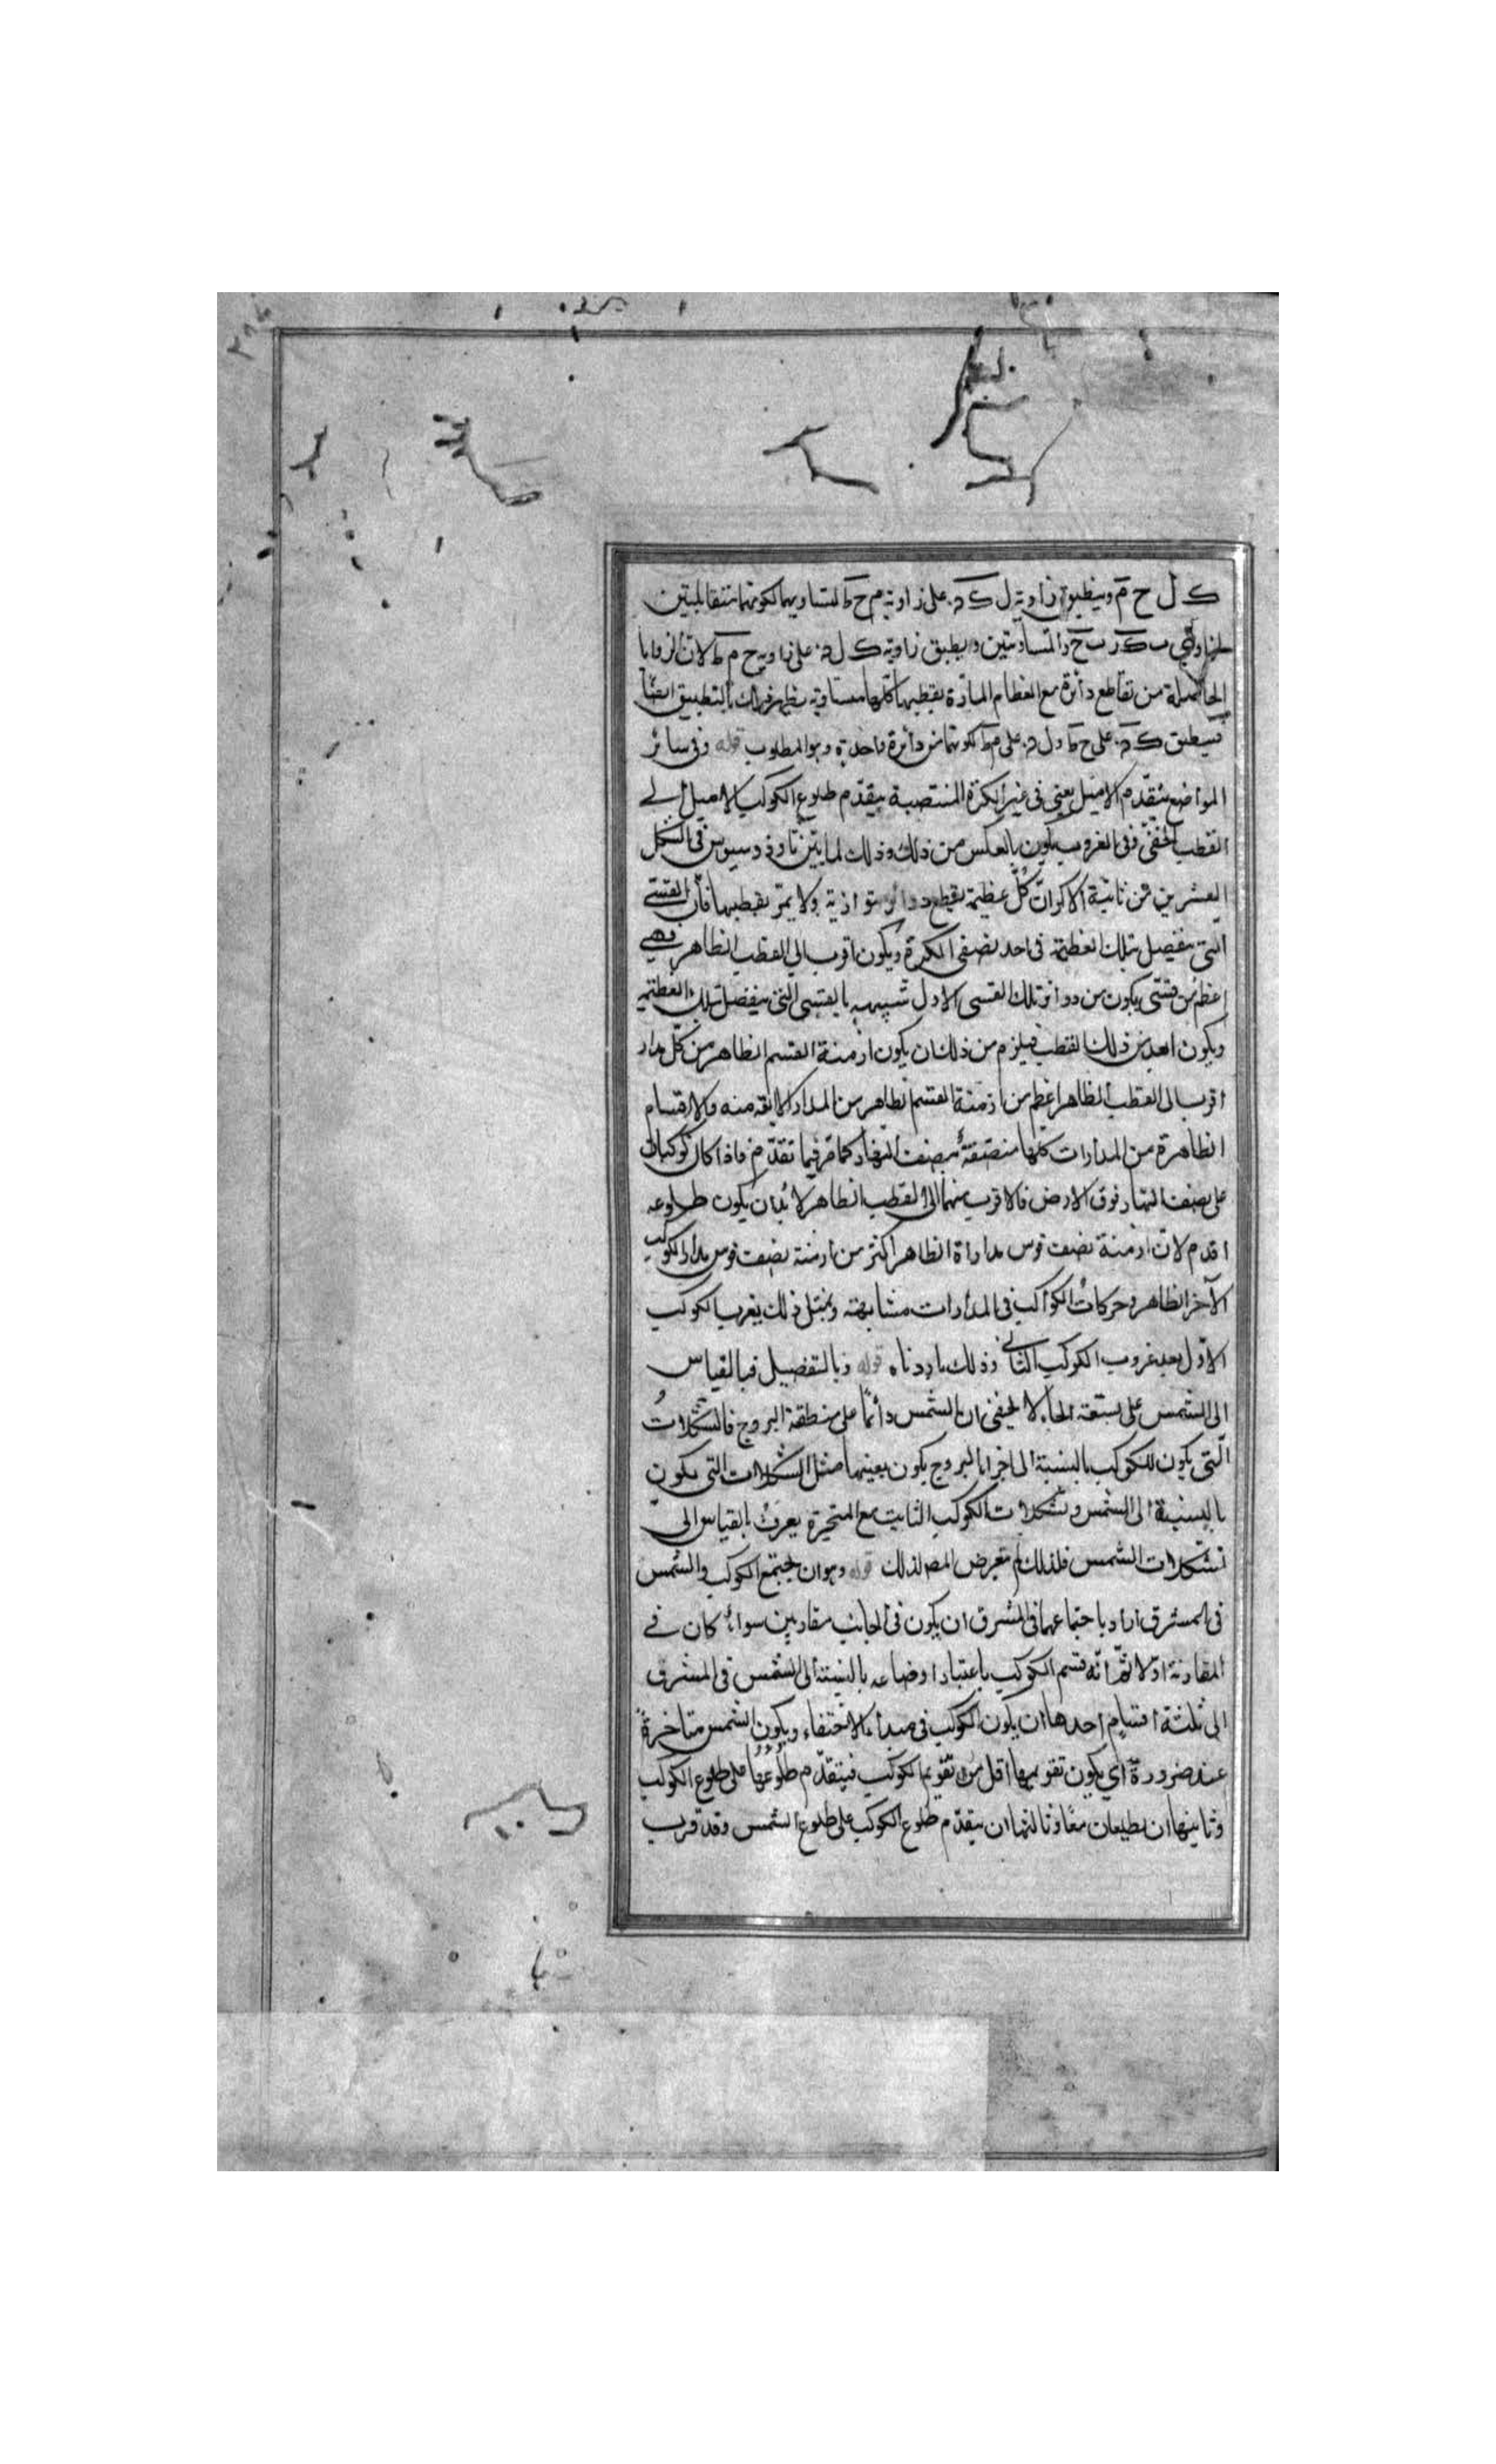 ك ل ح م وينطبق زاوية ل ك د على زاوية م ح ط لتساويهما لكونهما متقابلتين
لزاويتي ب ك ر ب ح د المتساويتين وانطبق زاوية ك ل د على زاوية ح م ط لان الزوايا
الحاصلة من تقاطع دائرة مع العظام المارة بقطبيها كلها متساوية يظهر ذلك بالتطبيق ايضا
فينطبق ك د على ح ط و ل د على م ط لكونهما من دائرة واحدة وهو المطلوب قوله وفي سائر
المواضع يتقدم الاميل يعني في غير الكرة المنتصبة يتقدم طلوع الكوكب الاميل الى
القطب الخفي وفي الغروب يكون بالعكس من ذلك وذلك لما بين ثاوذوسيوس في الشكل
العشرين من ثانية الاكر ان كل عظيمة يقطع دوائر متوازية ولا يمر بقطبيها فان القسي
التي يفصل بتلك العظيمة في احد نصفي الكرة ويكون اقرب الى القطب الظاهر فهي
اعظم من قسي يكون من دوائر تلك القسي الاول شبيهه بالقسي التي ينفصل بتلك العظيمة
ويكون ابعد من ذلك القطب فيلزم من ذلك ان يكون ازمنة القسم الظاهر من كل مدار
اقرب الى القطب الظاهر اعظم من ازمنة القسم الظاهر من المدار الابعد منه والاقسام
الظاهرة من المدارات كلها منتصفة بنصف النهار كما مر فيما تقدم فاذا كان كوكبان
على نصف النهار فوق الارض فالاقرب منهما الى القطب الظاهر لا بد ان يكون طلوعه
اقدم لان ازمنة نصف قوس مداراة الظاهر اكثر من ازمنة نصف قوس مدار الكوكب
الآخر الظاهر وحركات الكواكب في المدارات متشابهة وبمثل ذلك يغرب الكوكب
الاول بعد غروب الكوكب الثاني وذلك ما اردناه قوله وبالتفصيل فبالقياس
الى الشمس على ستعة انحاء لا يخفى ان الشمس دائما على منطقة البروج فالتشكلات
التي يكون للكوكب بالنسبة الى اجزاء البروج يكون بعينها مثل التشكلات التي يكون
بالنسبة الى الشمس وتشكلات الكوكب الثابت مع المتحيرة يعرف بالقياس الى
تشكلات الشمس فلذلك لم يتعرض المص لذلك قوله وهو ان يجتمع الكوكب والشمس
في المشرق اراد باجتماعهما في المشرق ان يكون في الجانب متقاربين سواء كان في
المقارنة اولا ثم انه قسم الكوكب باعتبار اوضاعه بالنسبة الى الشمس في المشرق
الى ثلثة اقسام احدها ان يكون الكوكب في مبدء الاختفاء ويكون الشمس متاخرة
عنه ضرورة اي يكون تقويمها اقل من تقويم الكوكب فيتقدم طلوعها على طلوع الكوكب
وثانيها ان يطلعان معا وثالثها ان يتقدم طلوع الكوكب على طلوع الشمس وقد قرب